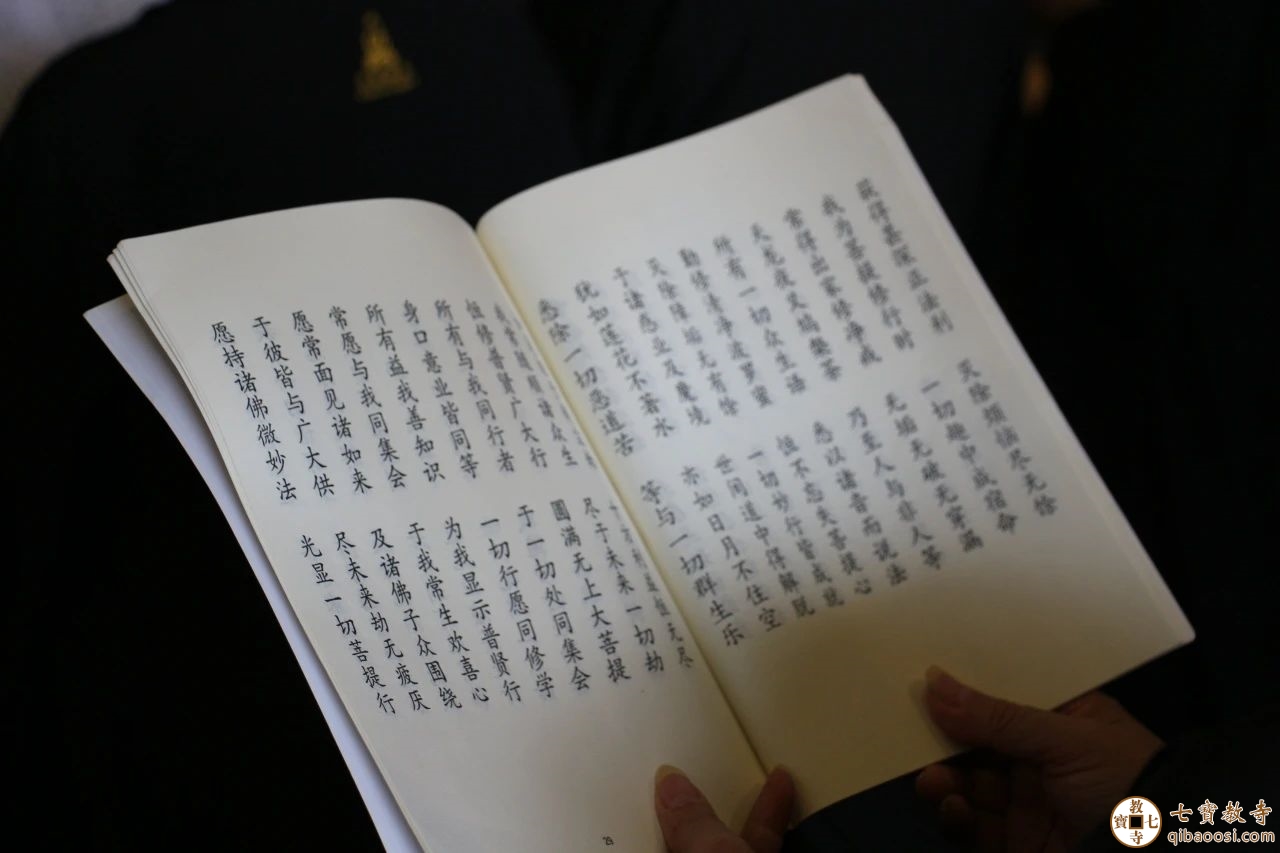 获得甚深正法利 灭除烦恼尽无余
我为菩提修行时 一切趣中成宿命
常得出家修净戒 无垢无破无穿漏
天龙夜叉鸠槃荼 乃至人与非人等
所有一切众生语 悉以诸音而说法
勤修清净波罗蜜 恒不忘失菩提心
灭除障垢无有余 一切妙行皆成就
于诸惑业及魔境 世间道中得解脱
犹如莲花不著水 亦如日月不住空
悉除一切恶道苦 等与一切群生乐
十方利益恒无尽
我常随顺诸众生 尽于未来一切劫
恒修普贤广大行 圆满无上大菩提
所有与我同行者 于一切处同集会
身口意业皆同等 一切行愿同修学
所有益我善知识 为我显示普贤行
常愿与我同集会 于我常生欢喜心
愿常面见诸如来 及诸佛子众围绕
于彼皆与广大供 尽未来劫无疲厌
愿持诸佛微妙法 光显一切菩提行
29
教七寺寶
七寶教寺
qibaoosi.com